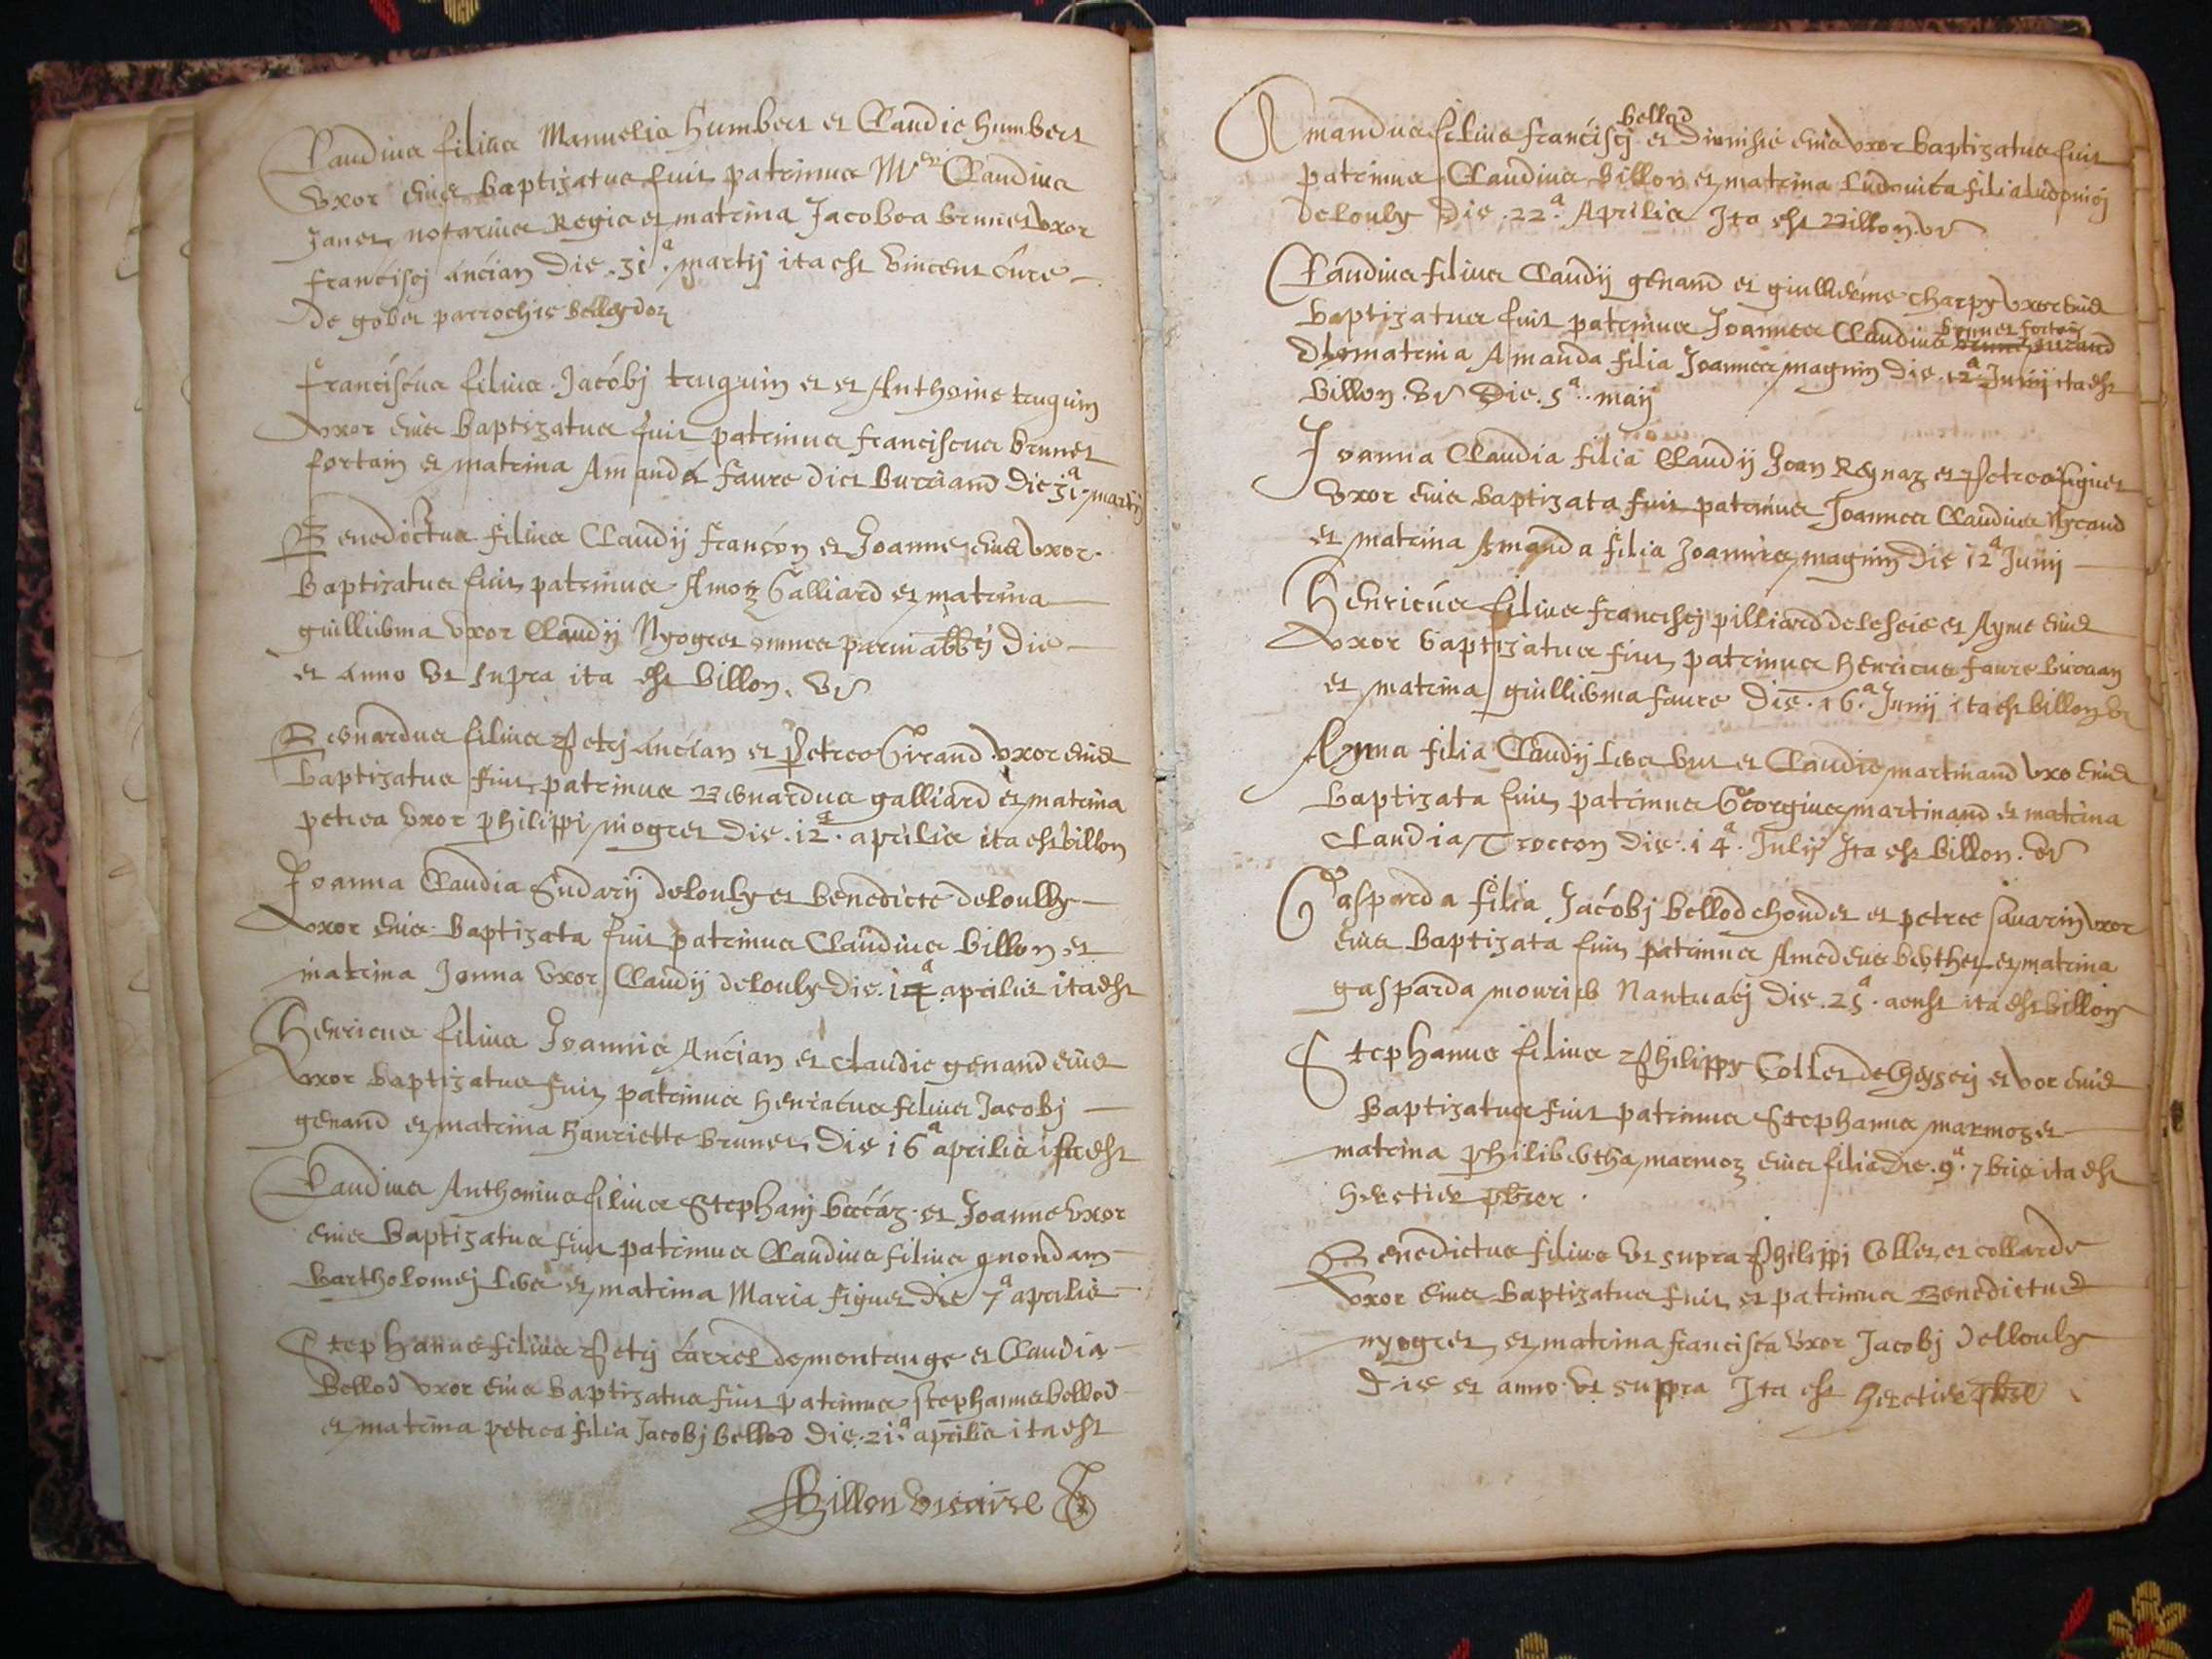 Claudius filius Manuelis humbert et Claudie humbert
uxor eius baptizatus fuit patrinus Mr Claudius
Janet notarius Regis et matrina Jacoboa brunet uxor
francisci ancian die .31a. martij ita est vincent curé
de gobet parrochie
franciscus filius Jacobj tuguin et et Anthoine tuguin
uxor eius baptizatus fuit patrinus franciscus brunet
fortain et matrina Amanda faure dict burriand die 31a martij
Benedictus filius Claudij françon et Joanne eius uxor
baptizatus fuit patrinus Amoz Galliard et matrina
guillierma uxor Claudij Nyogret omnes die
et anno ut supra ita est billon. vi
Bernardus filius Petrj ancian et Petrea Girand uxor eius
baptizatus fuit patrinus Bernardus galliard et matrina
petrea uxor philippi niogret die .12a. aprilis ita est billon
Joanna Claudia Sudarij delouly et benedicte deloully
uxor eius baptizata fuit patrinus Claudius billon et
matrina Jonna uxor Claudij delouly die .14a aprilis ita est
Henricus filius Joannis Ancian et claudie genand eius
uxor baptizatus fuit patrinus henricus filius Jacobj
genand et matrina hanriette brunet die 16a aprilis ita est
Claudius Anthonius filius Stephanj et Joanne uxor
eius baptizatus fuit patrinus Claudius filius quondam
bartholomej et matrina Maria figuet die 7a aprilis
Stephanus filius Petrj carrel de montange et Claudia
bellod uxor eius baptizatus fuit patrinus stephanus bellod
et matrina petrea filia Jacobj bellod die .21a aprilis ita est
Billon vicaire
bellod
Amandus filius franciscj et Dionisie eius uxor baptizatus fuit
patrinus Claudius billon et matrina ludovica filia ludovicj
delouly die .22a. Aprilis Ita est Billon. vi
Claudius filius Claudij genand et guillierme charpy uxor eius
brunet fortain
baptizatus fuit patrinus Joannes Claudius
matrina Amanda filia Joannes magnin die .12a Junij ita est
billon. vi die .5a. maij
Joanna Claudia filia Claudij Jean Reynaz et Petrea figuet
uxor eius baptizata fuit patrinus Joannes Claudius
et matrina Amanda filia Joannes magnin die 12a Junij
Henricus filius franciscj pilliard et Ayme eius
uxor baptizatus fuit patrinus henricus faure
et matrina guillierma faure die .16a. Junij ita est billon vi
Ayma filia Claudij et Claudie martinand uxo eius
baptizata fuit patrinus Georgius martinand et matrina
Claudia Troccon die .14a. Julij Ita est billon. vi
Gasparda filia Jacobj bellod chondet et petree savarin uxor
eius baptizata fuit patrinus Amedeus berthet et matrina
gasparda die .25a. ita est billon
Stephanus filius Philippj Collet et uxor eius
baptizatus fuit patrinus Stephanus marmoz et
matrina philibertha marmoz eius filia die .9a. 7bris ita est
Benedictus filius ut supra Philippi Collet et collarde
uxor eius baptizatus fuit et patrinus Benedictus
nyogret et matrina francisca uxor Jacobj Dellouly
die et anno ut suppra Ita est